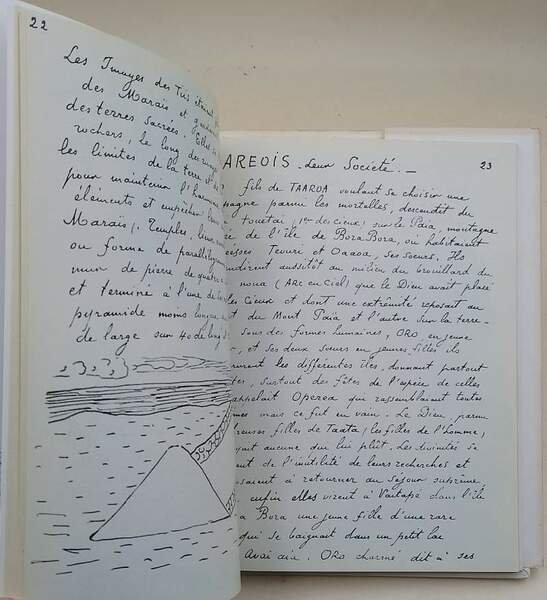 22
Les Images des Tiis étaient
des Marais, et
des terres sacrées.
rochers, le long des
les limites de la terre et de
pour maintenir l'harmonie
éléments et empêcher
Marais). Temples, lieux
ou forme de
mur de pierre de quatre
et terminé à l'une de
pyramide moins longue
de large sur 40 de long
23
AREOIS - Leur Société. -
fils de TAAROA voulant se choisir une
parmi les mortelles, descendit du
Touetai (1er des cieux) sur le Païa, montagne
de l'île de Bora Bora, où habitaient
Teouri et Oaaoa, ses soeurs. Ils
aussitôt au milieu du brouillard du
noua (Arc en Ciel) que le Dieu avait placé
les Cieux et dont une extrémité reposait au
du Mont Païa et l'autre sur la terre.
Sous des formes humaines, ORO, en jeune
, et ses deux soeurs en jeunes filles ils
les différentes îles, donnant partout
, surtout des fêtes de l'espèce de celles
appelait Operea qui rassemblaient toutes
mais ce fut en vain. Le Dieu, parmi
filles de Taata, les filles de l'Homme,
aucune qui lui plût. Les divinités se
de l'inutilité de leurs recherches et
à retourner au Séjour suprême,
enfin elles virent à Vaitapé dans l'île
Bora une jeune fille d'une rare
qui se baignait dans un petit lac
Avai aia. ORO charmé dit à ses